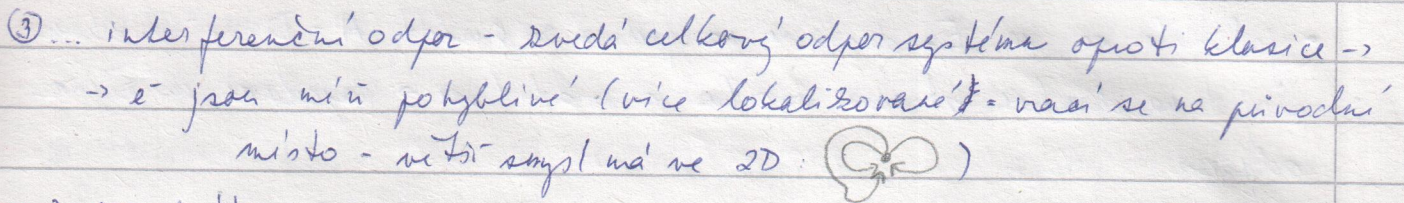 ③... interferenční odpor - zvedá celkový odpor systému oproti klasice →
→ e⁻ jsou míň pohyblivé (více lokalizované = vrací se na původní
místo - větší smysl má ve 2D: )